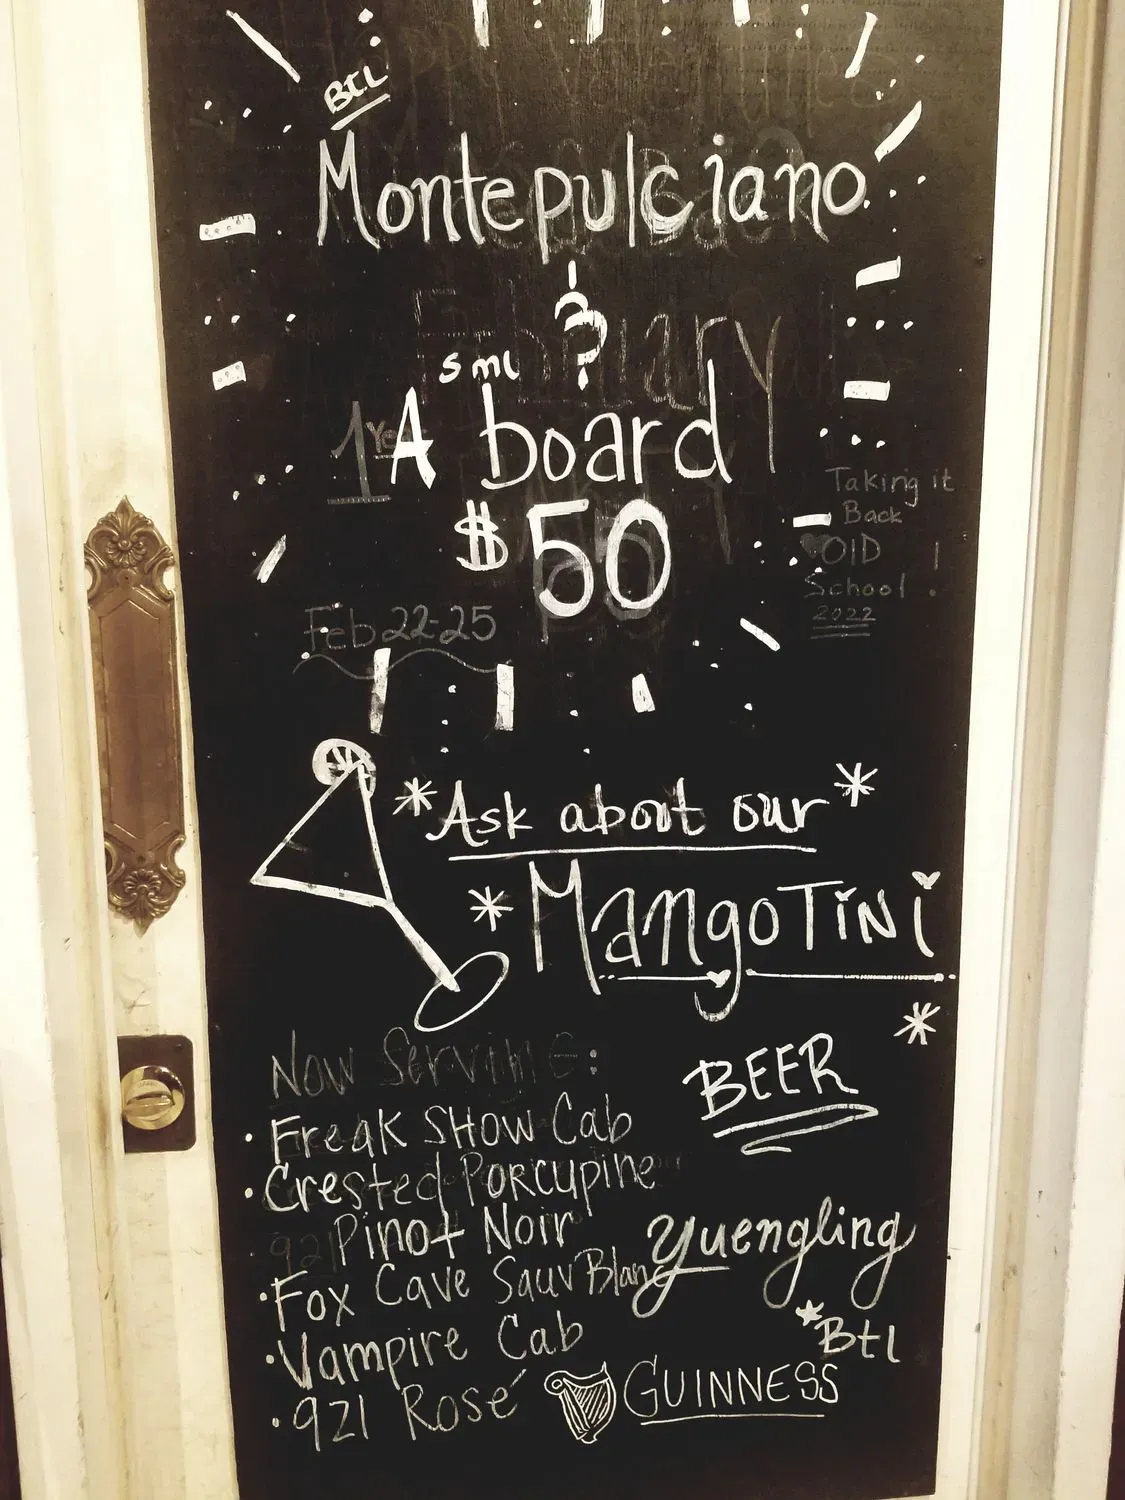 Btl
Montepulciano
&
sml
A board
$50
1 Yr
February
Taking it
Back
OlD
School !
2022
Feb 22-25
*Ask about our*
*MangoTiNi
*
Now Serving:
BEER
• Freak SHOW Cab
• Crested Porcupine
921 Pinot Noir
• Fox Cave Sauv Blanc
• Vampire Cab
• 921 Rosé
Yuengling
*Btl
GUINNESS